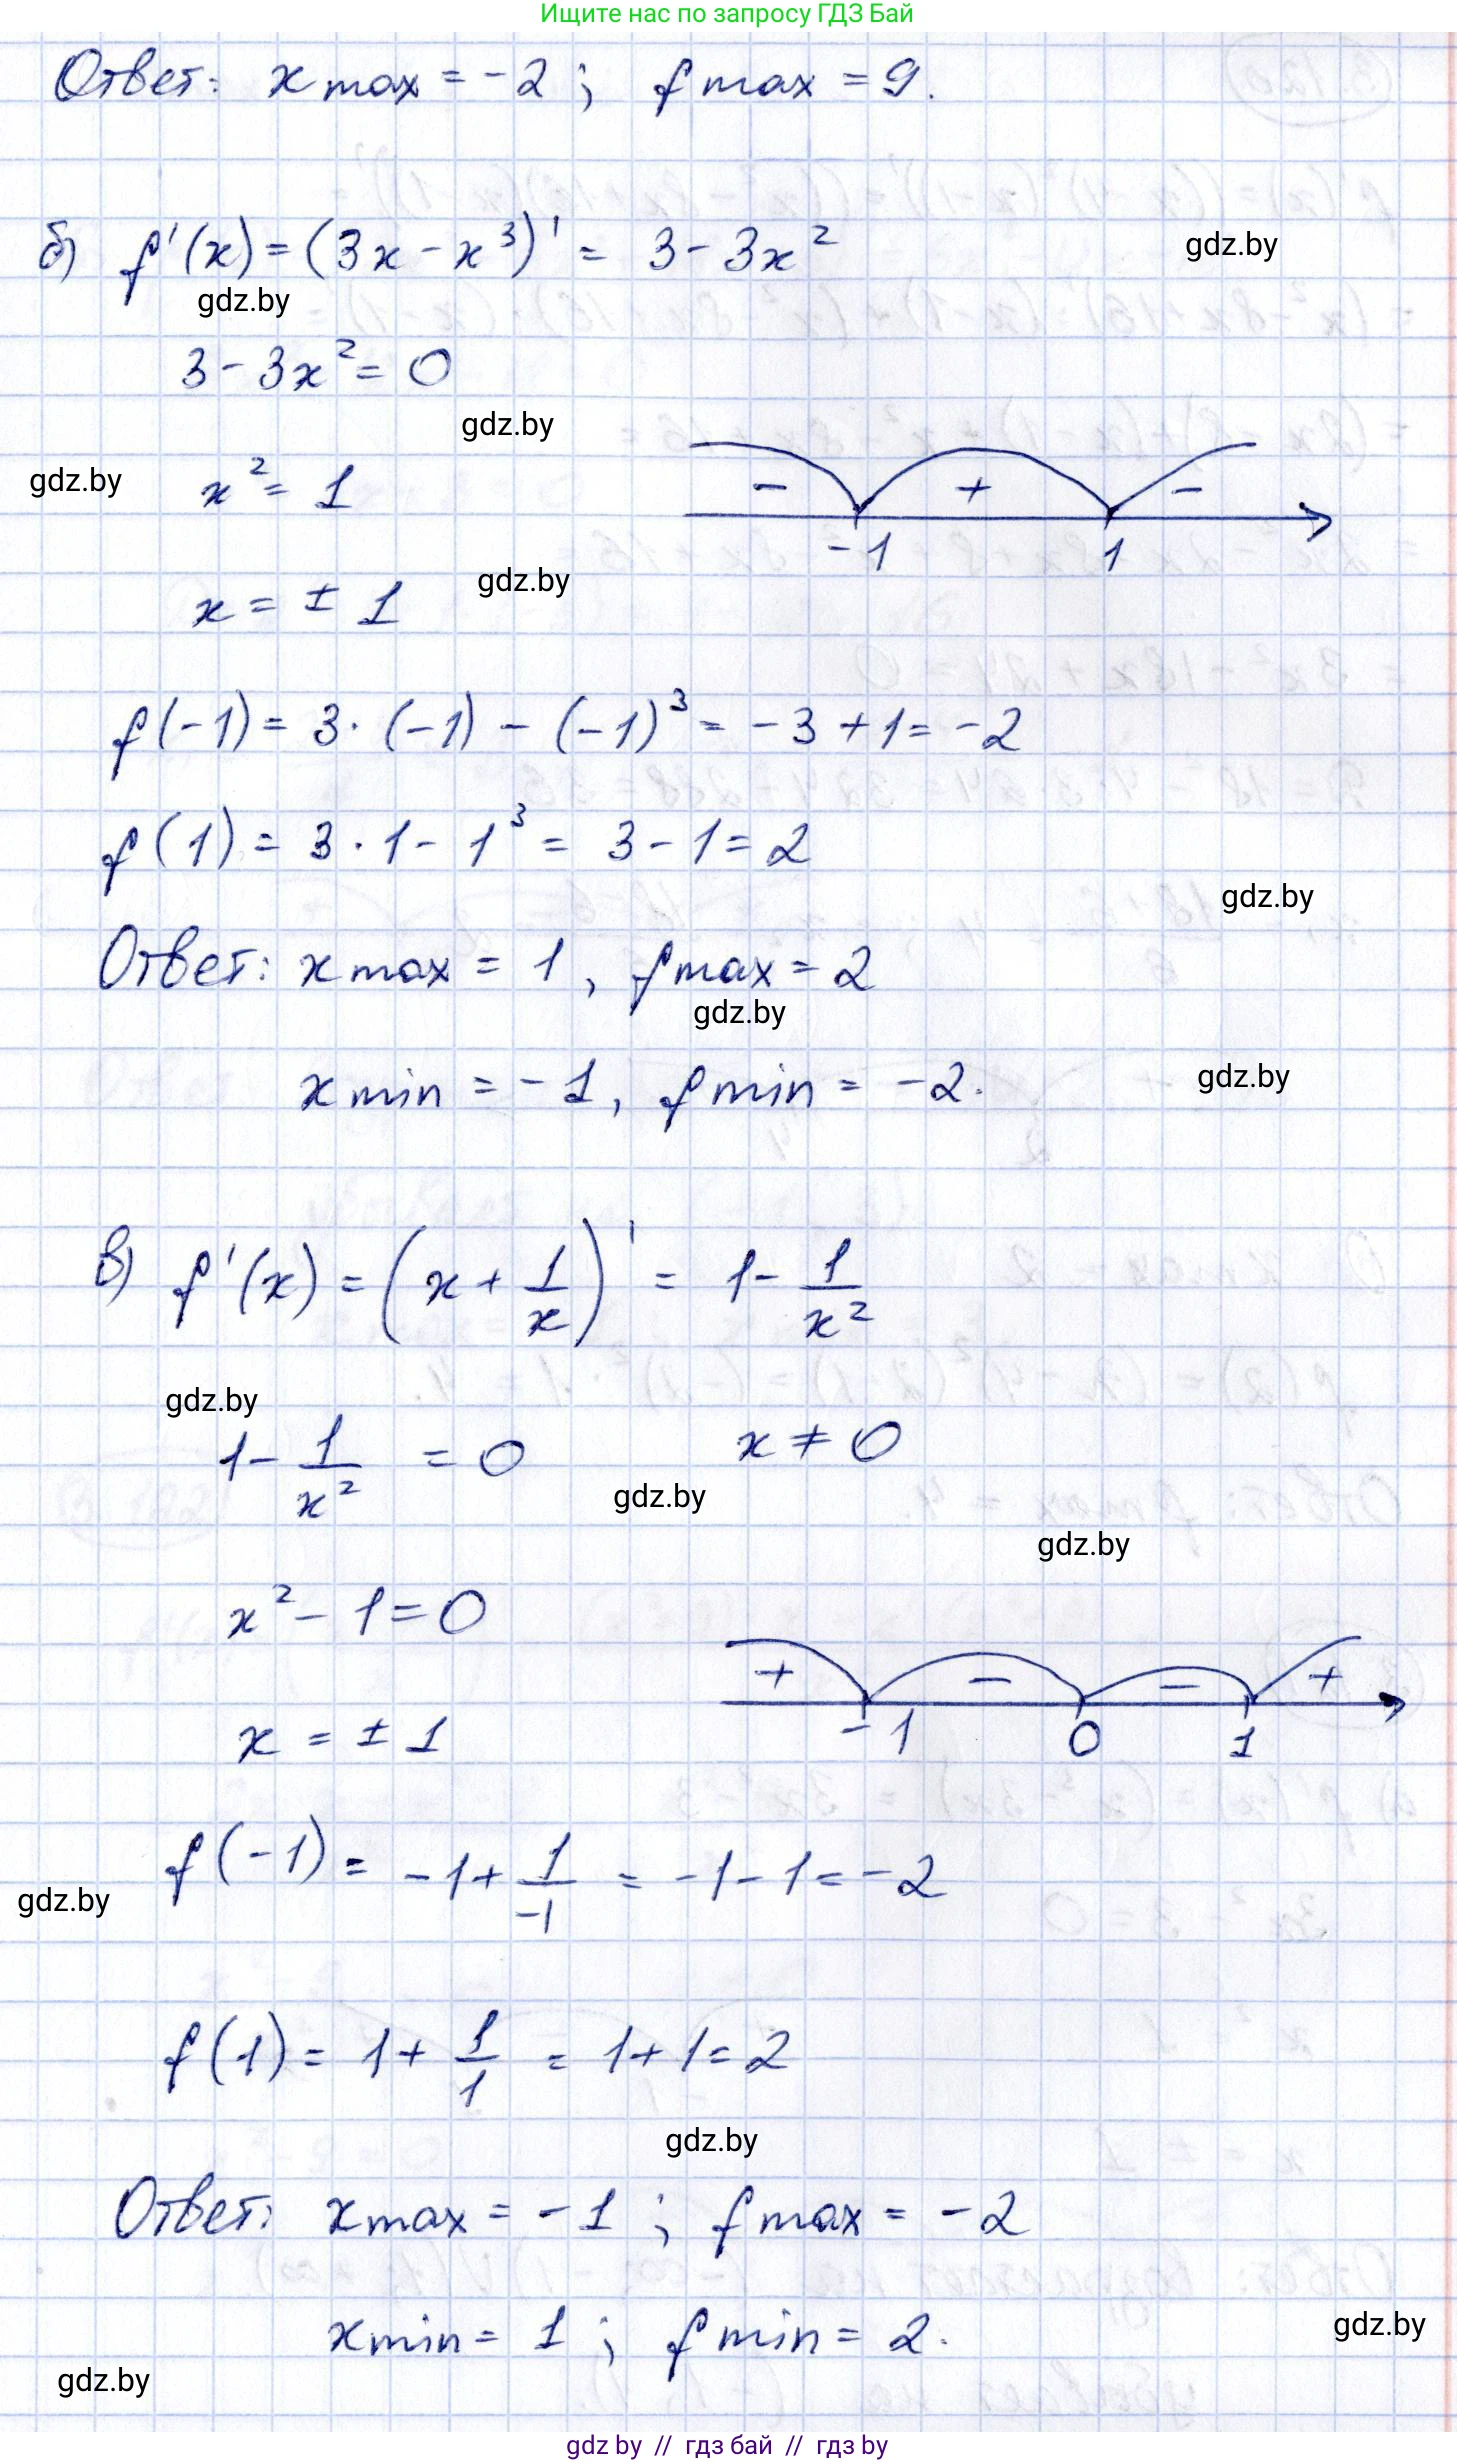 Ищите нас по запросу ГДЗ Бай
Ответ: x max = -2 ; f max = 9.
б) f'(x) = (3x - x³)' = 3 - 3x²
gdz.by
gdz.by
3 - 3x² = 0
gdz.by
gdz.by
x² = 1
- + -
-1 1
x = ± 1
gdz.by
f(-1) = 3 · (-1) - (-1)³ = -3 + 1 = -2
f(1) = 3 · 1 - 1³ = 3 - 1 = 2
gdz.by
Ответ: x max = 1 , f max = 2
gdz.by
x min = -1, f min = -2.
gdz.by
в) f'(x) = (x + 1/x)' = 1 - 1/x²
gdz.by
1 - 1/x² = 0 x ≠ 0
gdz.by
gdz.by
x² - 1 = 0
+ - - +
-1 0 1
x = ± 1
f(-1) = -1 + 1/-1 = -1 - 1 = -2
gdz.by
f(1) = 1 + 1/1 = 1 + 1 = 2
gdz.by
Ответ: x max = -1 ; f max = -2
x min = 1 ; f min = 2.
gdz.by
gdz.by
gdz by // гдз бай // гдз by